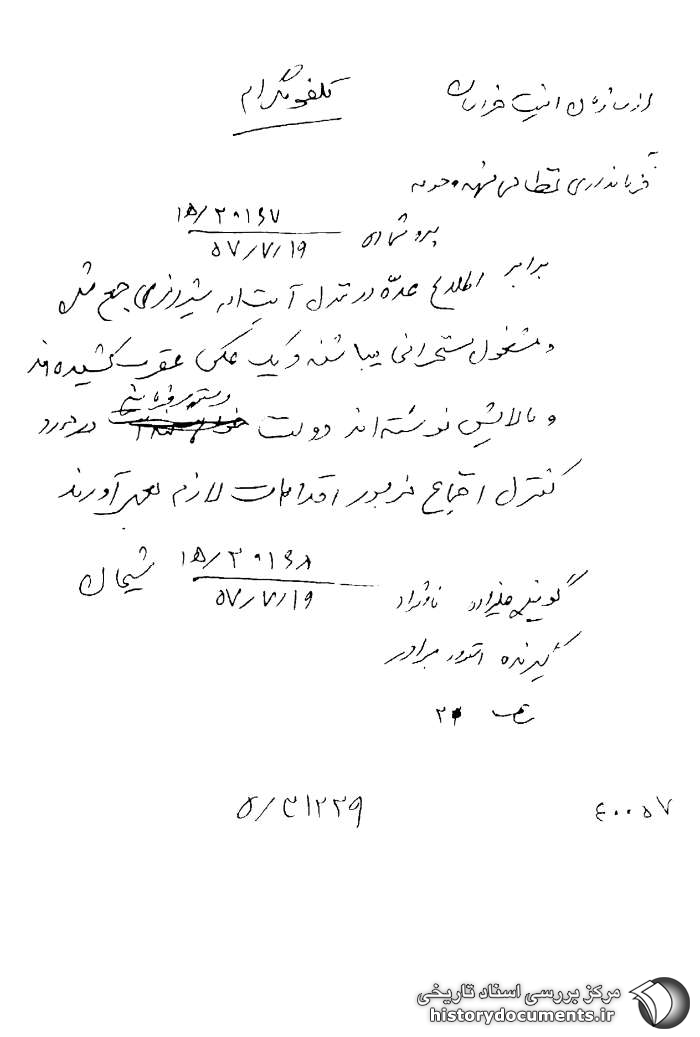 از سازمان امنیت خراسان تلفونگرام
فرمانداری نظامی مشهد و حومه
پیرو شماره ۱۵/۲۰۱۶۷
۵۷/۷/۱۹
برابر اطلاع عده در منزل آیت اله شیرازی جمع شده
و مشغول سخنرانی میباشند و یک عکس عقرب کشیده اند
و بالایش نوشته اند دولت دستور فرمائید در مورد
کنترل اجتماع مزبور اقدامات لازم بعمل آورند
۱۵/۲۰۱۶۸ شیخان
۵۷/۷/۱۹
گوینده علیزاده نانژاد
گیرنده استوار برادر
ساعت ۲۰
۵/۳۱۲۲۹ ۴۰۰۵۷
مرکز بررسی اسناد تاریخی
historydocuments.ir